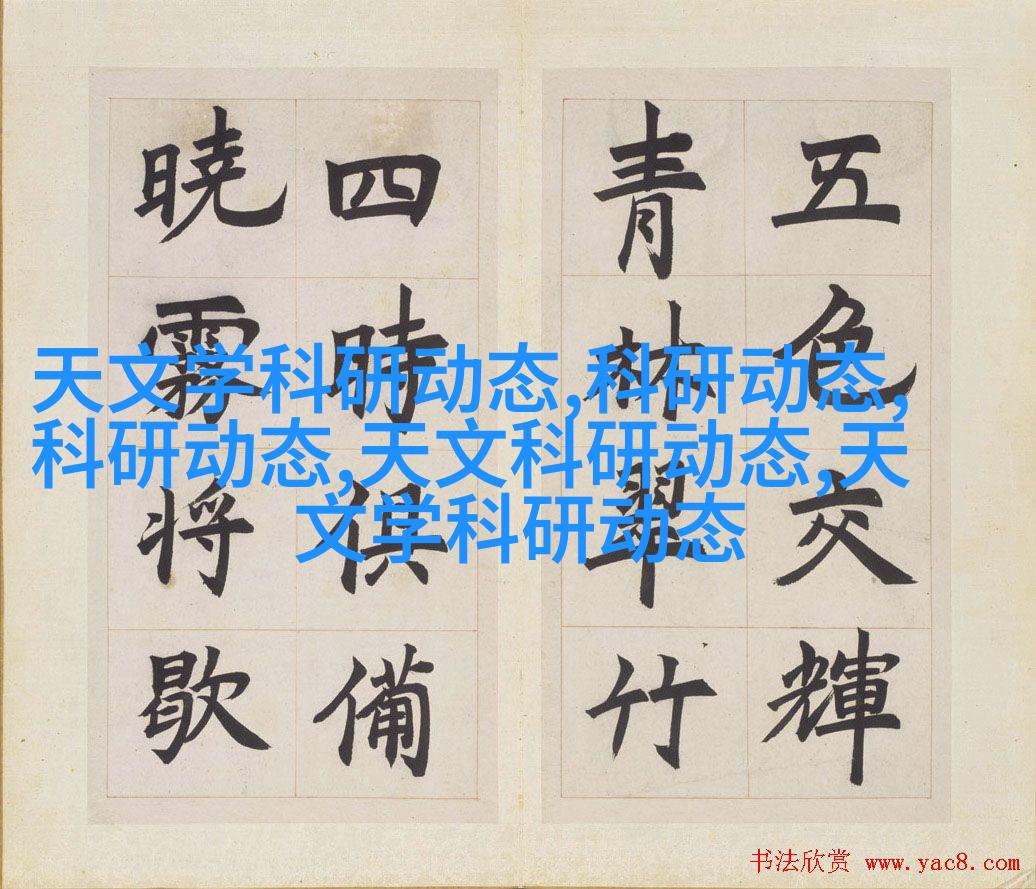 五色交輝
青林翠竹
四時俱備
曉霧將歇
天文学科研动态,科研动态,
科研动态,天文科研动态,天
文学科研动态
书法欣赏 www.yac8.com